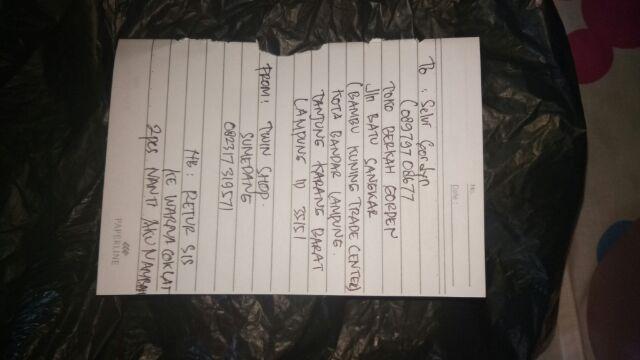 No.
Date :
To : Selvi Gordyn
(089797 08677
TOKO BERKAH GORDEN
Jln BATU SANGKAR
(BAMBU KUNING TRADE CENTER)
KOTA BANDAR LAMPUNG.
TANJUNG KARANG BARAT
LAMPUNG ID 35151
FROM : TWIN SHOP.
SUMEDANG
082317319571
NB : RETUR SIS
KE WARNA COKLAT
2pcs NANTI AKU NAMBAH
PAPERLINE